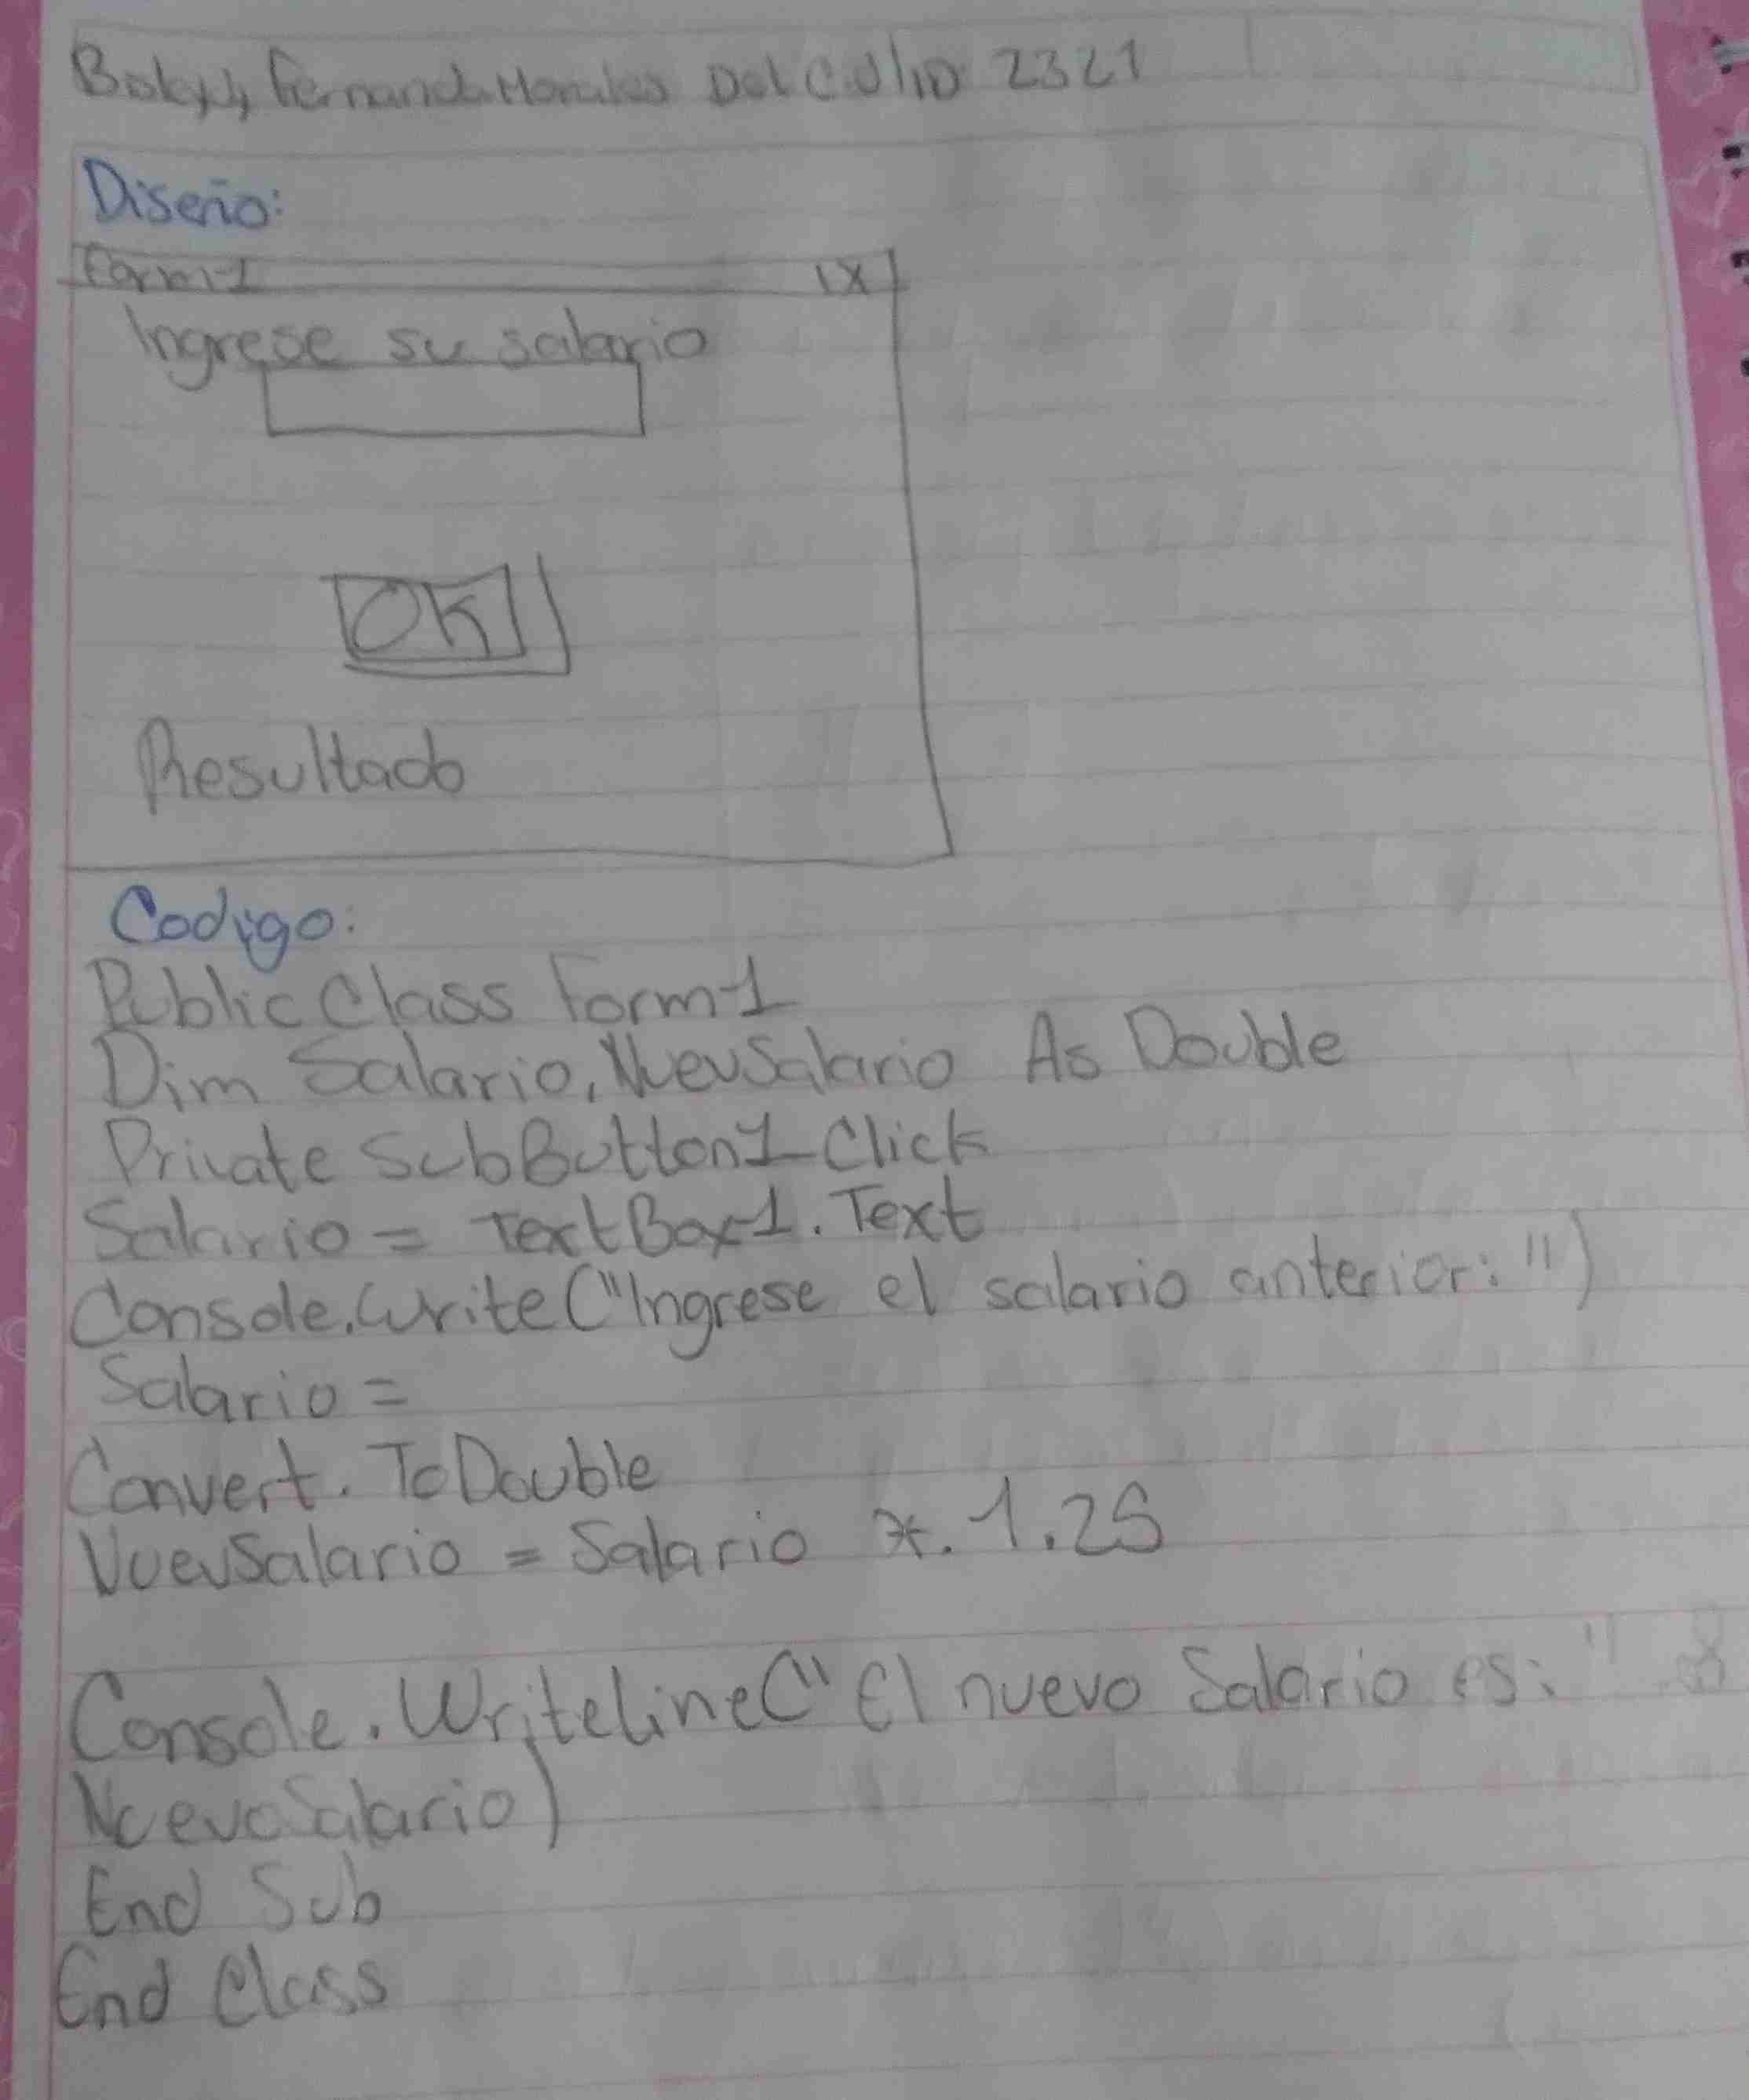 Fernanda Morales Del 2321
Diseño:
Form1 X
Ingrese su salario
OK
Resultado
Codigo:
Public Class Form1
Dim Salario, NuevSalario As Double
Private SubButton1_Click
Salario = TextBox1.Text
Console.Write("Ingrese el salario anterior: ")
Salario =
Convert. ToDouble
NuevSalario = Salario *. 1.25
Console.Writeline(" El nuevo Salario es: " &
NuevoSalario)
End Sub
End Class